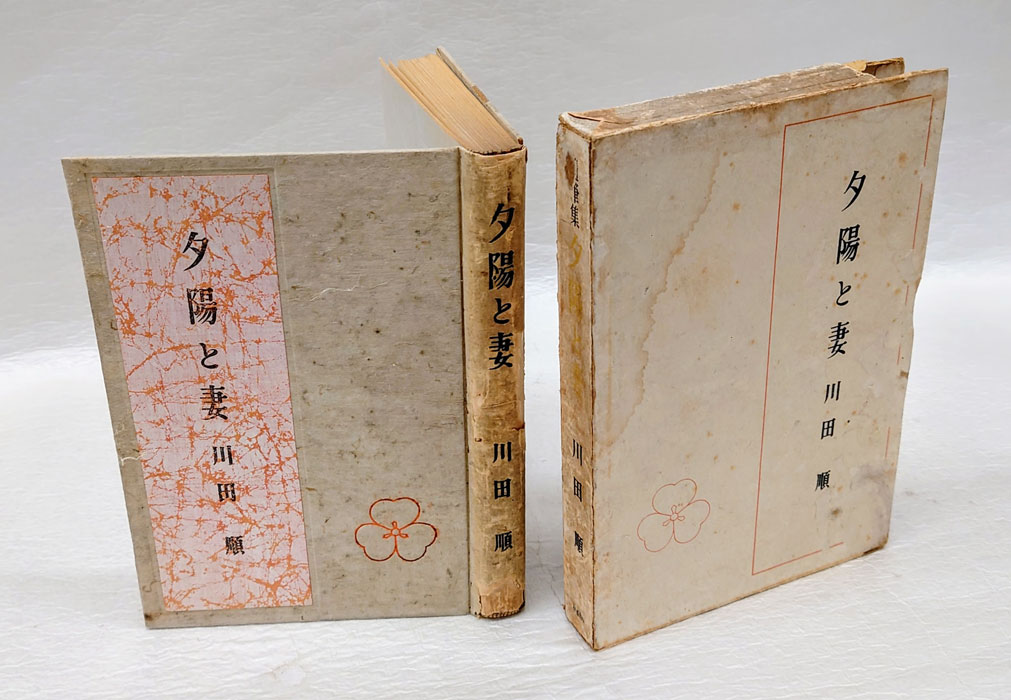 夕陽と妻
川田 順
夕陽と妻
川田 順
集
夕
川田 順
夕陽と妻
川田 順